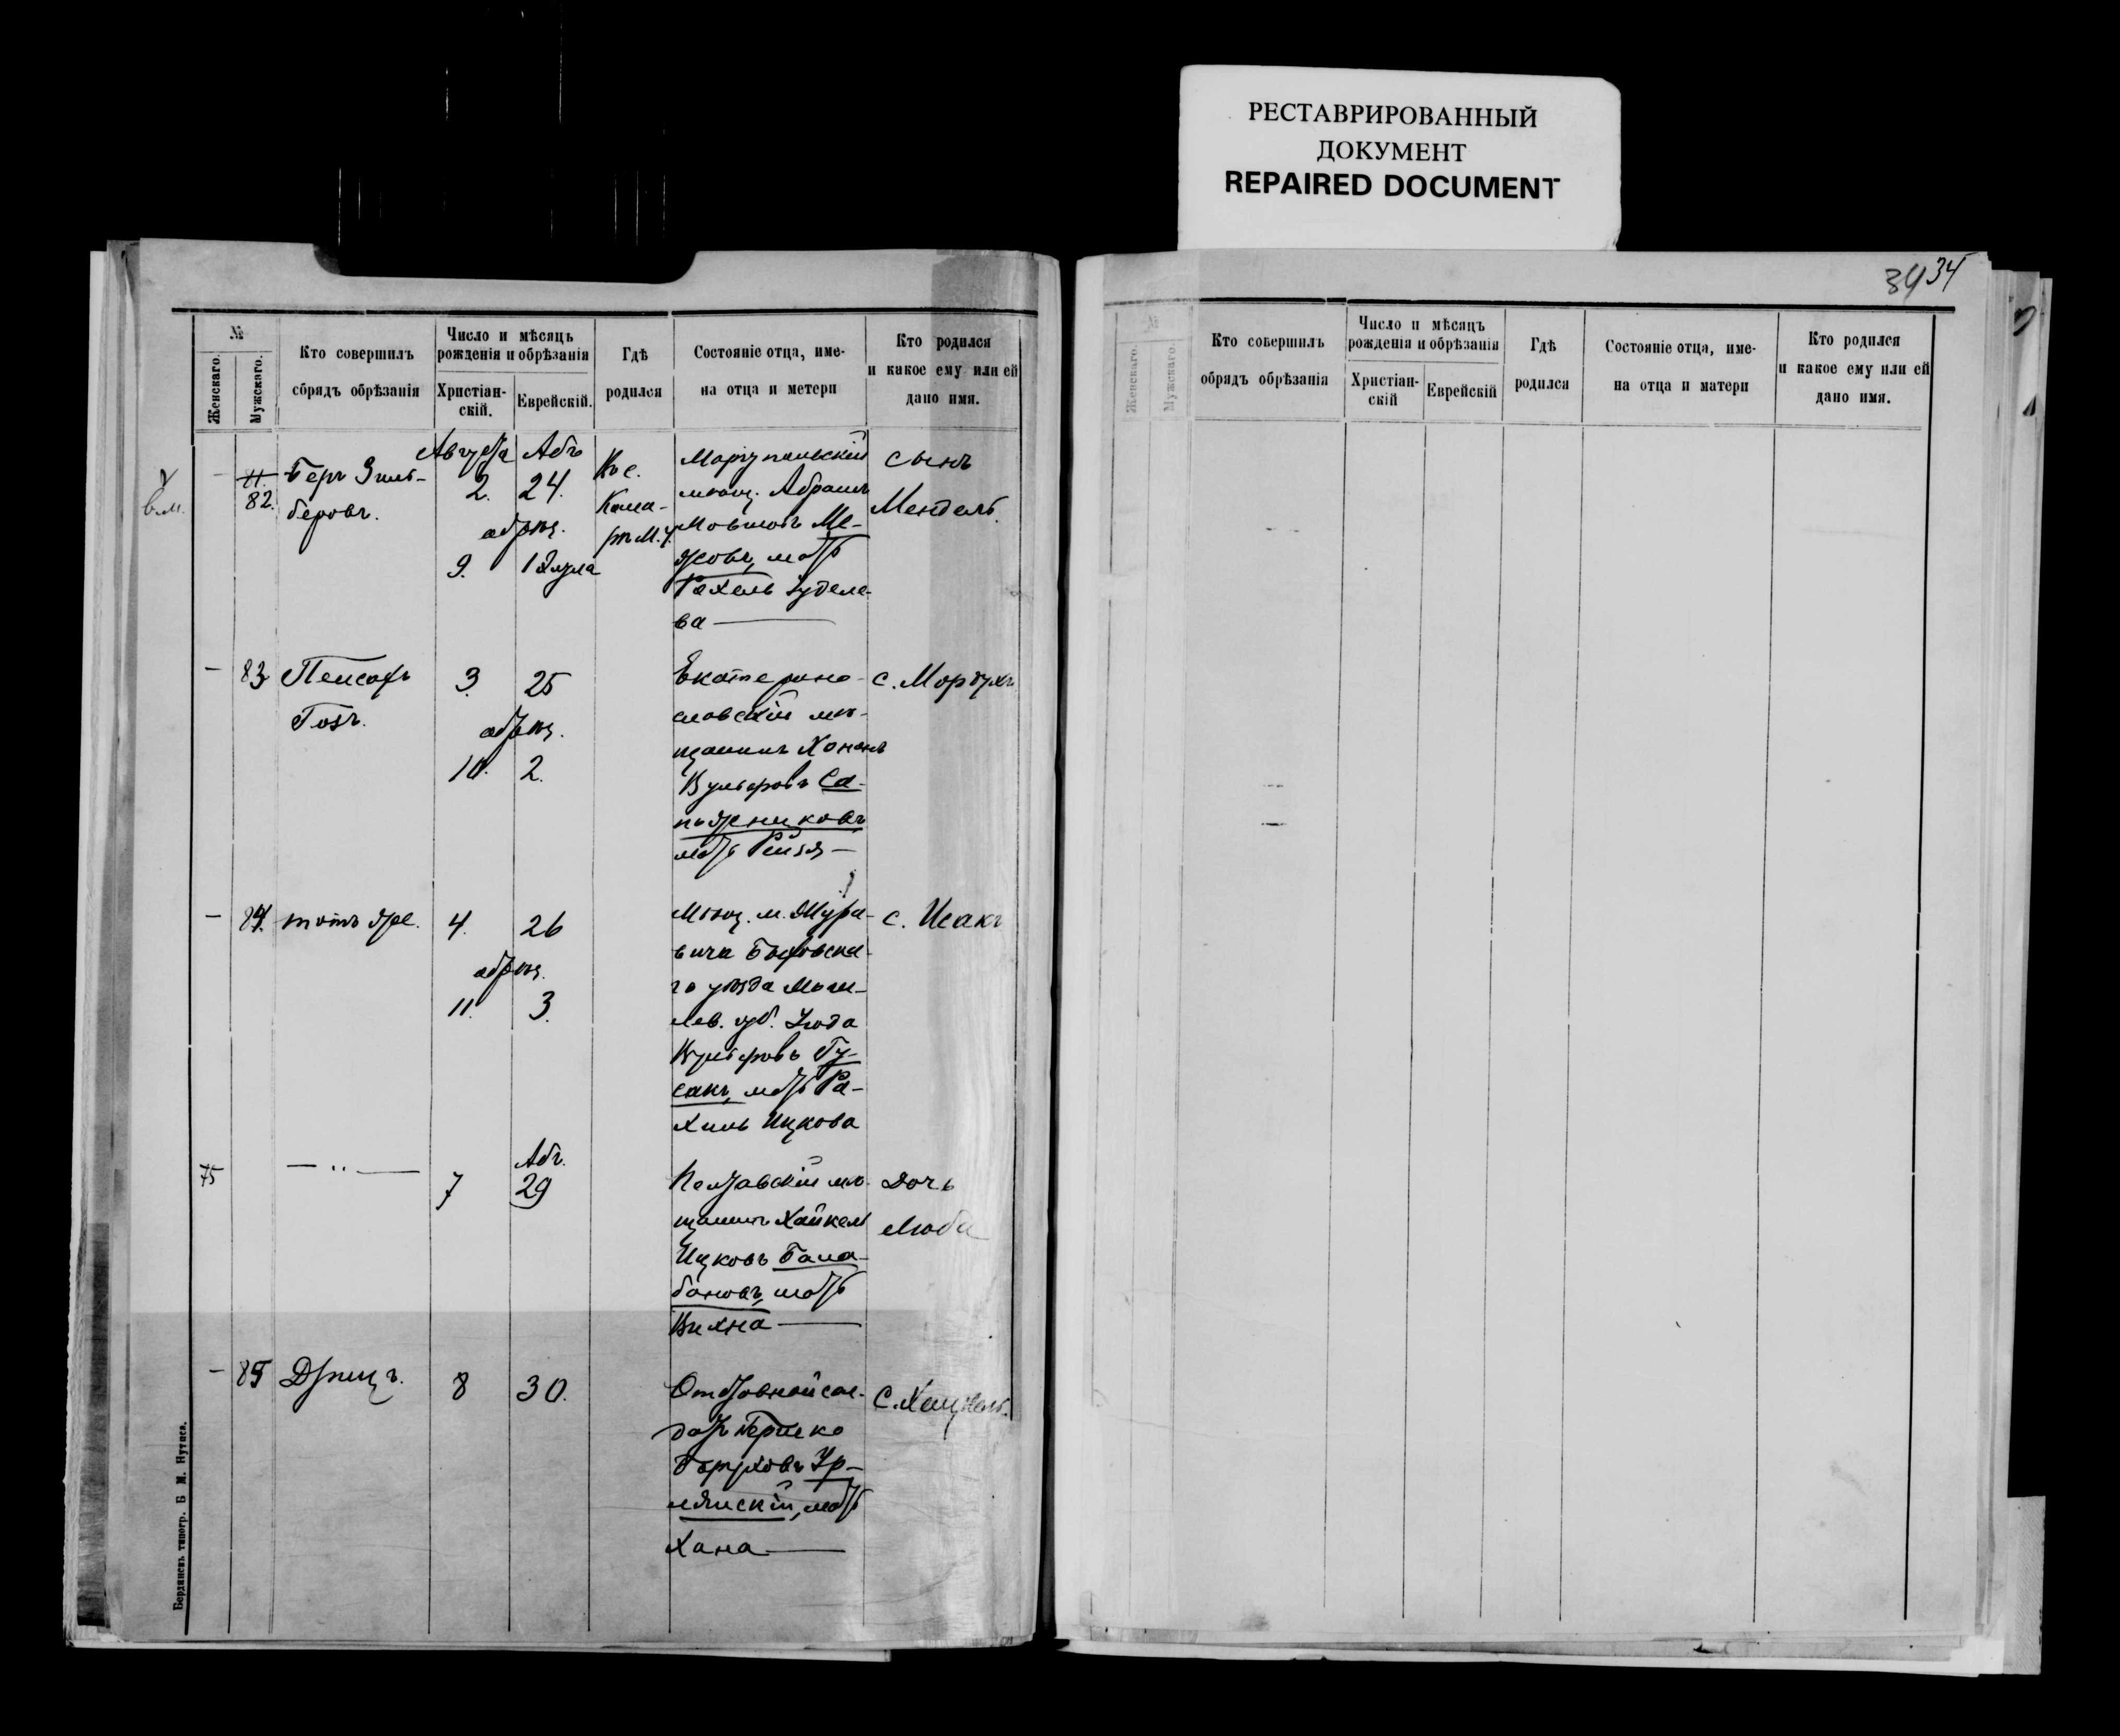 РЕСТАВРИРОВАННЫЙ
ДОКУМЕНТ
REPAIRED DOCUMENT
№
Женскаго.
Мужскаго.
Кто совершилъ
обрядъ обрѣзанія
Число и мѣсяцъ
рожденія и обрѣзанія
Христіан-
скій.
Еврейскій.
Гдѣ
родился
Состояніе отца, име-
на отца и метери
Кто родился
и какое ему или ей
дано имя.
—
11.
82.
Беръ Зиль-
беровъ.
Августа
2.
обрѣз.
9.
Абъ
24.
1 Элула
Въ с.
Кома-
рѣ М. у.
Маріупольскій
мѣщ. Абрамъ
Мовшовъ Ме-
жовъ, мать
Рахель Іуделе-
ва —
сынъ
Мендель.
— 83 Пейсахъ
Гозъ.
3. 25
обрѣз.
10. 2.
Екатерино-
славскій мѣ-
щанинъ Хононъ
Вульфовъ Са-
пожниковъ
мать Рейзя —
с. Мордухъ
— 84. тотъ же. 4. 26
обрѣз.
11. 3.
Мѣщ. м. Жура-
вича Быховска-
го уѣзда Моги-
лев. губ. Іуда
Вульфовъ Гу-
санъ, мать Ра-
хиль Ицкова
с. Исакъ
75 — „ —
7
Абъ.
29
Полтавскій мѣ-
щанинъ Хайкель
Ицковъ Бала-
бановъ, мать
Вихна —
дочь
Люба
— 85 8 30.
Отставной сол-
датъ Гершко
Боруховъ
мать
Хана —
С. Хацкель.
Бердянскъ типогр. Б М. Нутиса.
34 34
№
Женскаго.
Мужскаго.
Кто совершилъ
обрядъ обрѣзанія
Число и мѣсяцъ
рожденія и обрѣзанія
Христіан-
скій
Еврейскій
Гдѣ
родился
Состояніе отца, име-
на отца и матери
Кто родился
и какое ему или ей
дано имя.